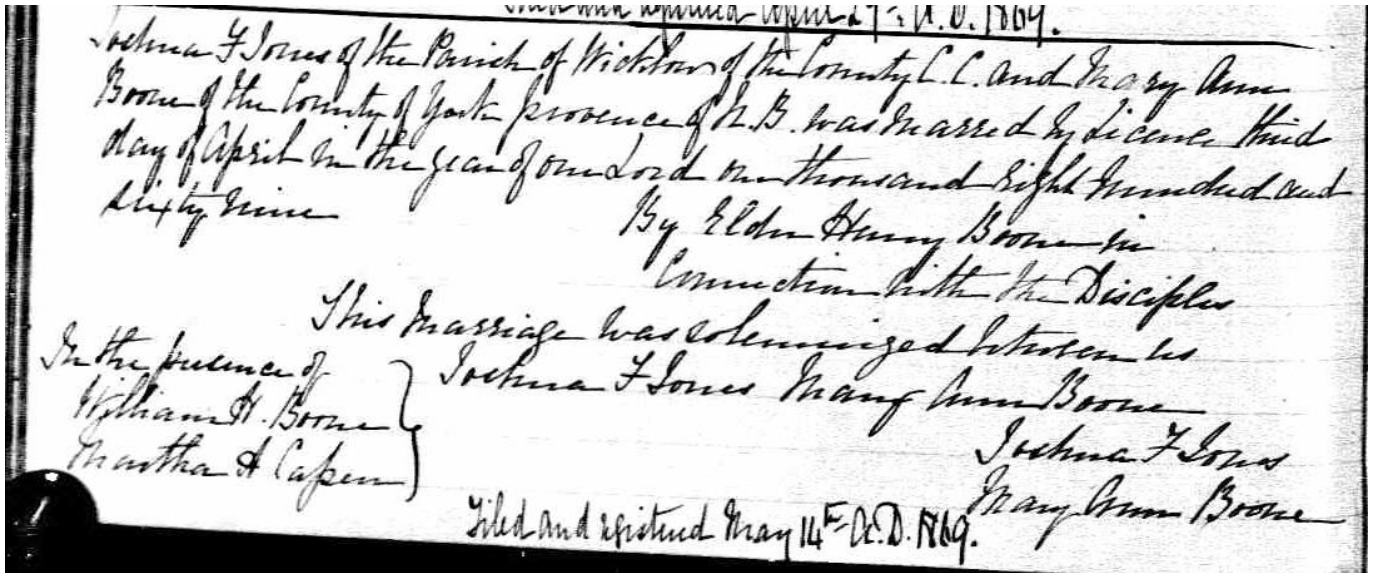 Filed and registered April 27th A.D. 1869.
Joshua F Jones of the Parish of Wicklow of the County C.C. and Mary Ann
Boone of the County of York provence of N.B. was Marred by Licence third
day of April in the year of our Lord one thousand Eight Hundred and
Sixty Nine
By Elder Henry Boone in
Connection with the Disciples
This Marriage was solemnized between us
Joshua F Jones Mary Ann Boone
In the presence of
William H. Boone
Martha A Capen
Joshua F Jones
Mary Ann Boone
Filed and registered May 14th A.D. 1869.